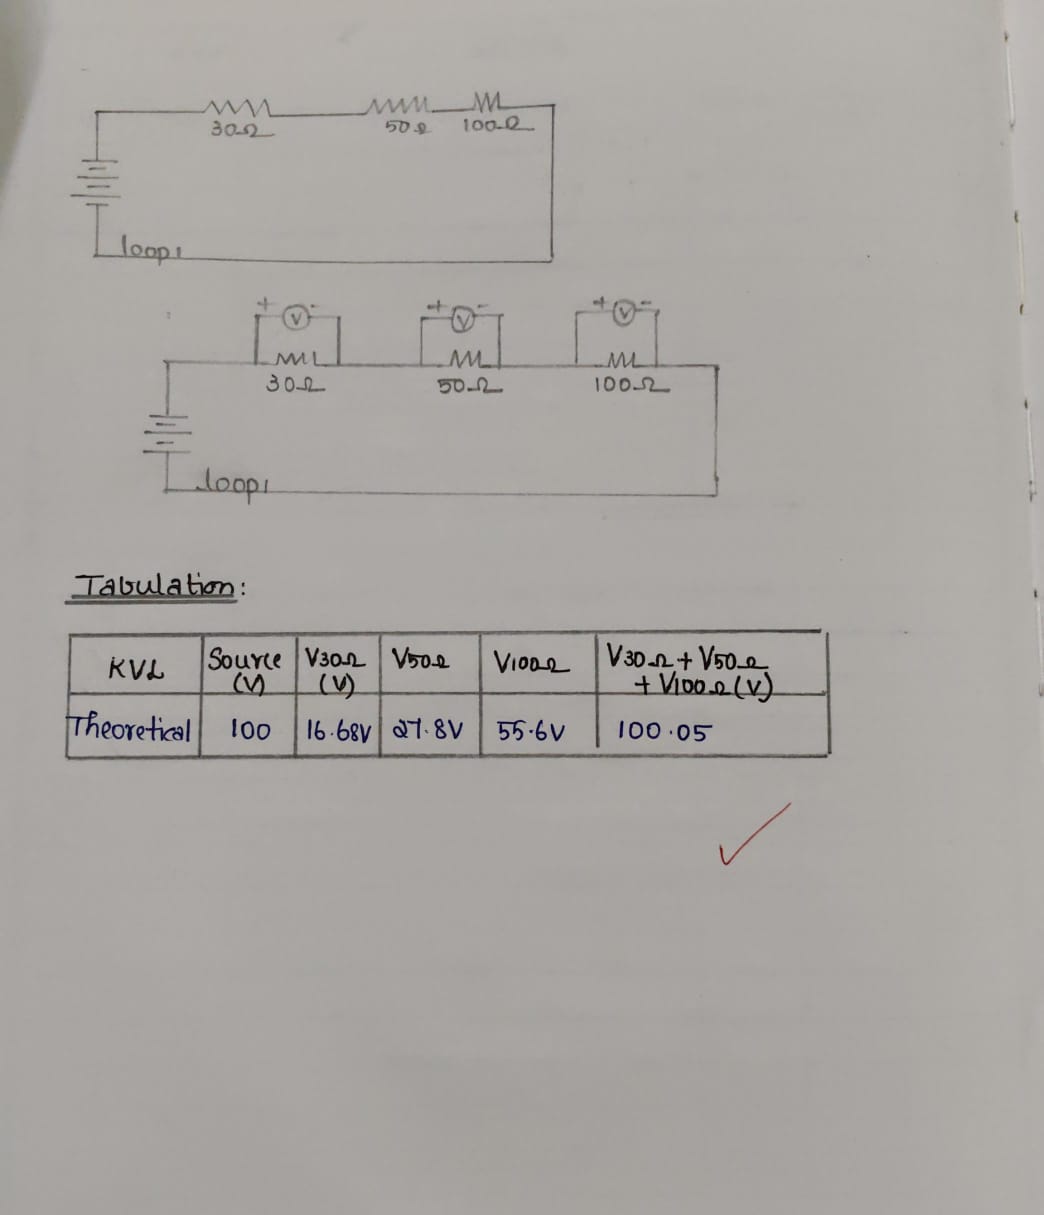 30Ω 50Ω 100Ω
loop1
+ V - + V - + V -
30Ω 50Ω 100Ω
loop1
Tabulation:
KVL Source (V) V30Ω (V) V50Ω V100Ω V30Ω + V50Ω + V100Ω (V)
Theoretical 100 16.68V 27.8V 55.6V 100.05